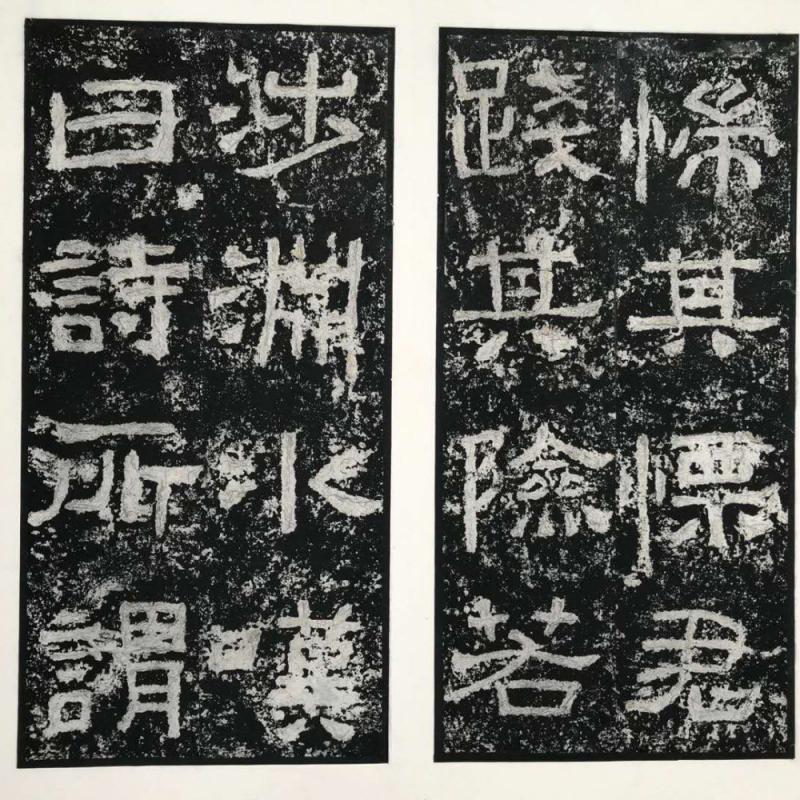 其慄君
踐其險若
涉淵冰嘆
曰詩所謂